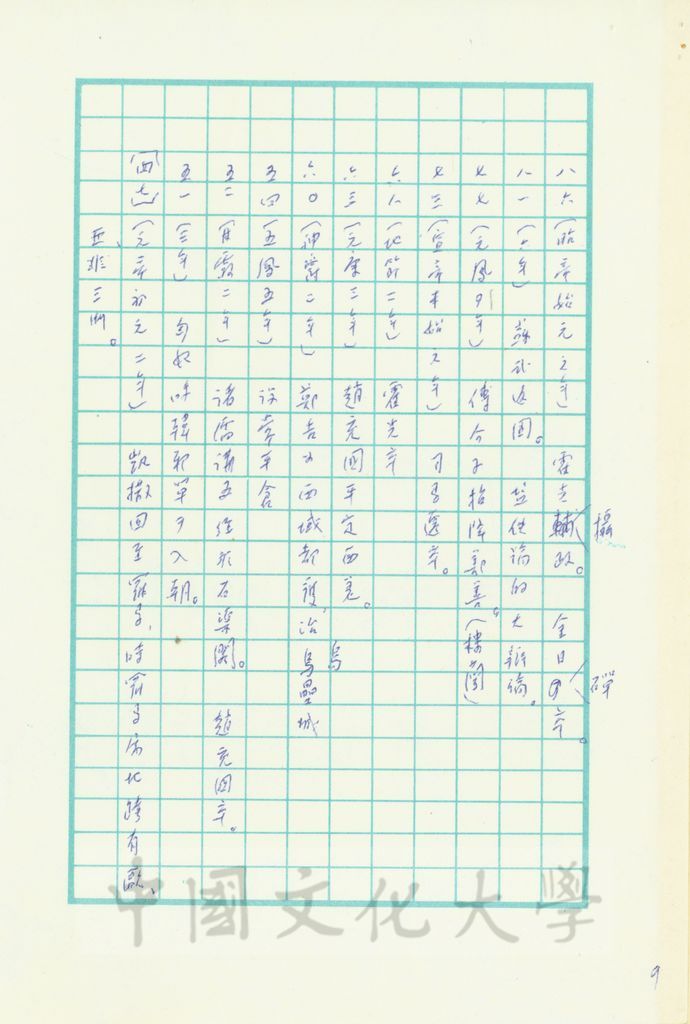 八六（昭帝始元元年） 霍光輔政。 金日 卒。
攝
磾
八一（六年） 蘇武返國。 鹽鐵論的大辯論。
七七（元鳳四年） 傅介子招降鄯善。（樓蘭）
七三（宣帝本始元年） 司馬遷卒。
六八（地節二年） 霍光卒
六三（元康三年） 趙充國平定西羌。
六〇（神爵二年） 鄭吉為西域都護，治烏壘城
烏
五四（五鳳四年） 設常平倉
五二（甘露二年） 諸儒講五經於石渠閣。 趙充國卒。
五一（三年） 匈奴呼韓邪單于入朝。
四七（元帝初元二年） 凱撒回至羅馬，時羅馬屬地跨有歐、
亞、非三洲。
中國文化大學
9